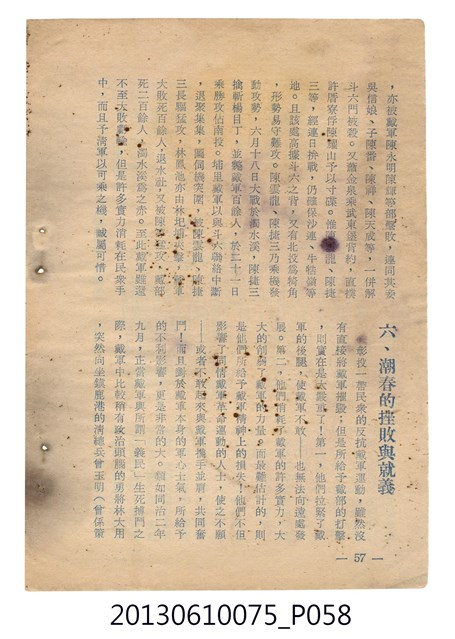 ，亦被戴軍陳永明陳輝等部擊敗，連同其妻
吳信娘、子陳番、陳祥、陳天成等，一併解
斗六門被殺。又蕭金泉乘武東堡背約，直撲
許厝寮俘陳耀山予以寸磔。惟陳雲龍、陳捷
三等，經連日拚戰，仍確保沙連、牛牯嶺等
地。且該處高據斗六之背，又有北投爲犄角
，形勢易守難攻。陳雲龍、陳捷三乃乘機發
動攻勢，六月十八日大戰於濁水溪，陳捷三
擒斬楊目丁，並斃戴軍百餘人，於二十一日
乘勝攻佔南投。埔里戴軍以與斗六聯絡中斷
，退聚集集，鳳伺機突圍，陳雲龍、陳捷
三長驅猛攻，林鳳池亦由林圯埔夾擊，戴軍
大敗死百餘人，退水社，又被陳 猛攻，戴部
死二百餘人，濁水溪爲之赤。至此戴軍雖還
不至大敗 ，但是許多實力消耗在民衆手
中，而且予淸軍以可乘之機，誠屬可惜。
六、潮春的挫敗與就義
彰投一帶民衆的反抗戴軍運動，雖然沒
有直接將戴軍摧毀；但是所給予戴部的打擊
，則實在是太嚴重了！第一，他們拉緊了戴
軍的後腿，使戴軍不敢——也無法向遠處發
展。第二，他們消耗了戴軍的許多實力，大
大的削弱了戴軍的力量。而最難估計的，則
是他們所給予戴軍精神上的損失！他們不但
影響了同情戴軍革命運動的人士，使之不願
——或者不敢起來與戴軍携手並肩，共同奮
鬥！而且對於戴軍本身的軍心士氣，所給予
的不利影響，更是非常的大。類如同治二年
九月，正當戴軍與所謂「義民」生死搏鬥之
際，戴軍中比較稍有政治頭腦的勇將林大用
，突然向坐鎭鹿港的淸總兵曾玉明（曾係策
— 57 —
20130610075_P058